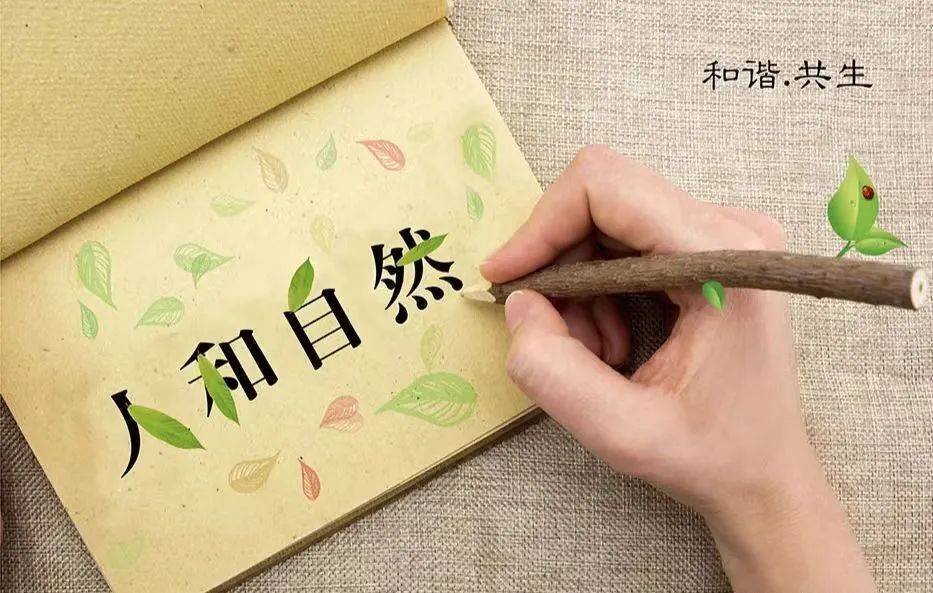 和谐.共生
人和自然